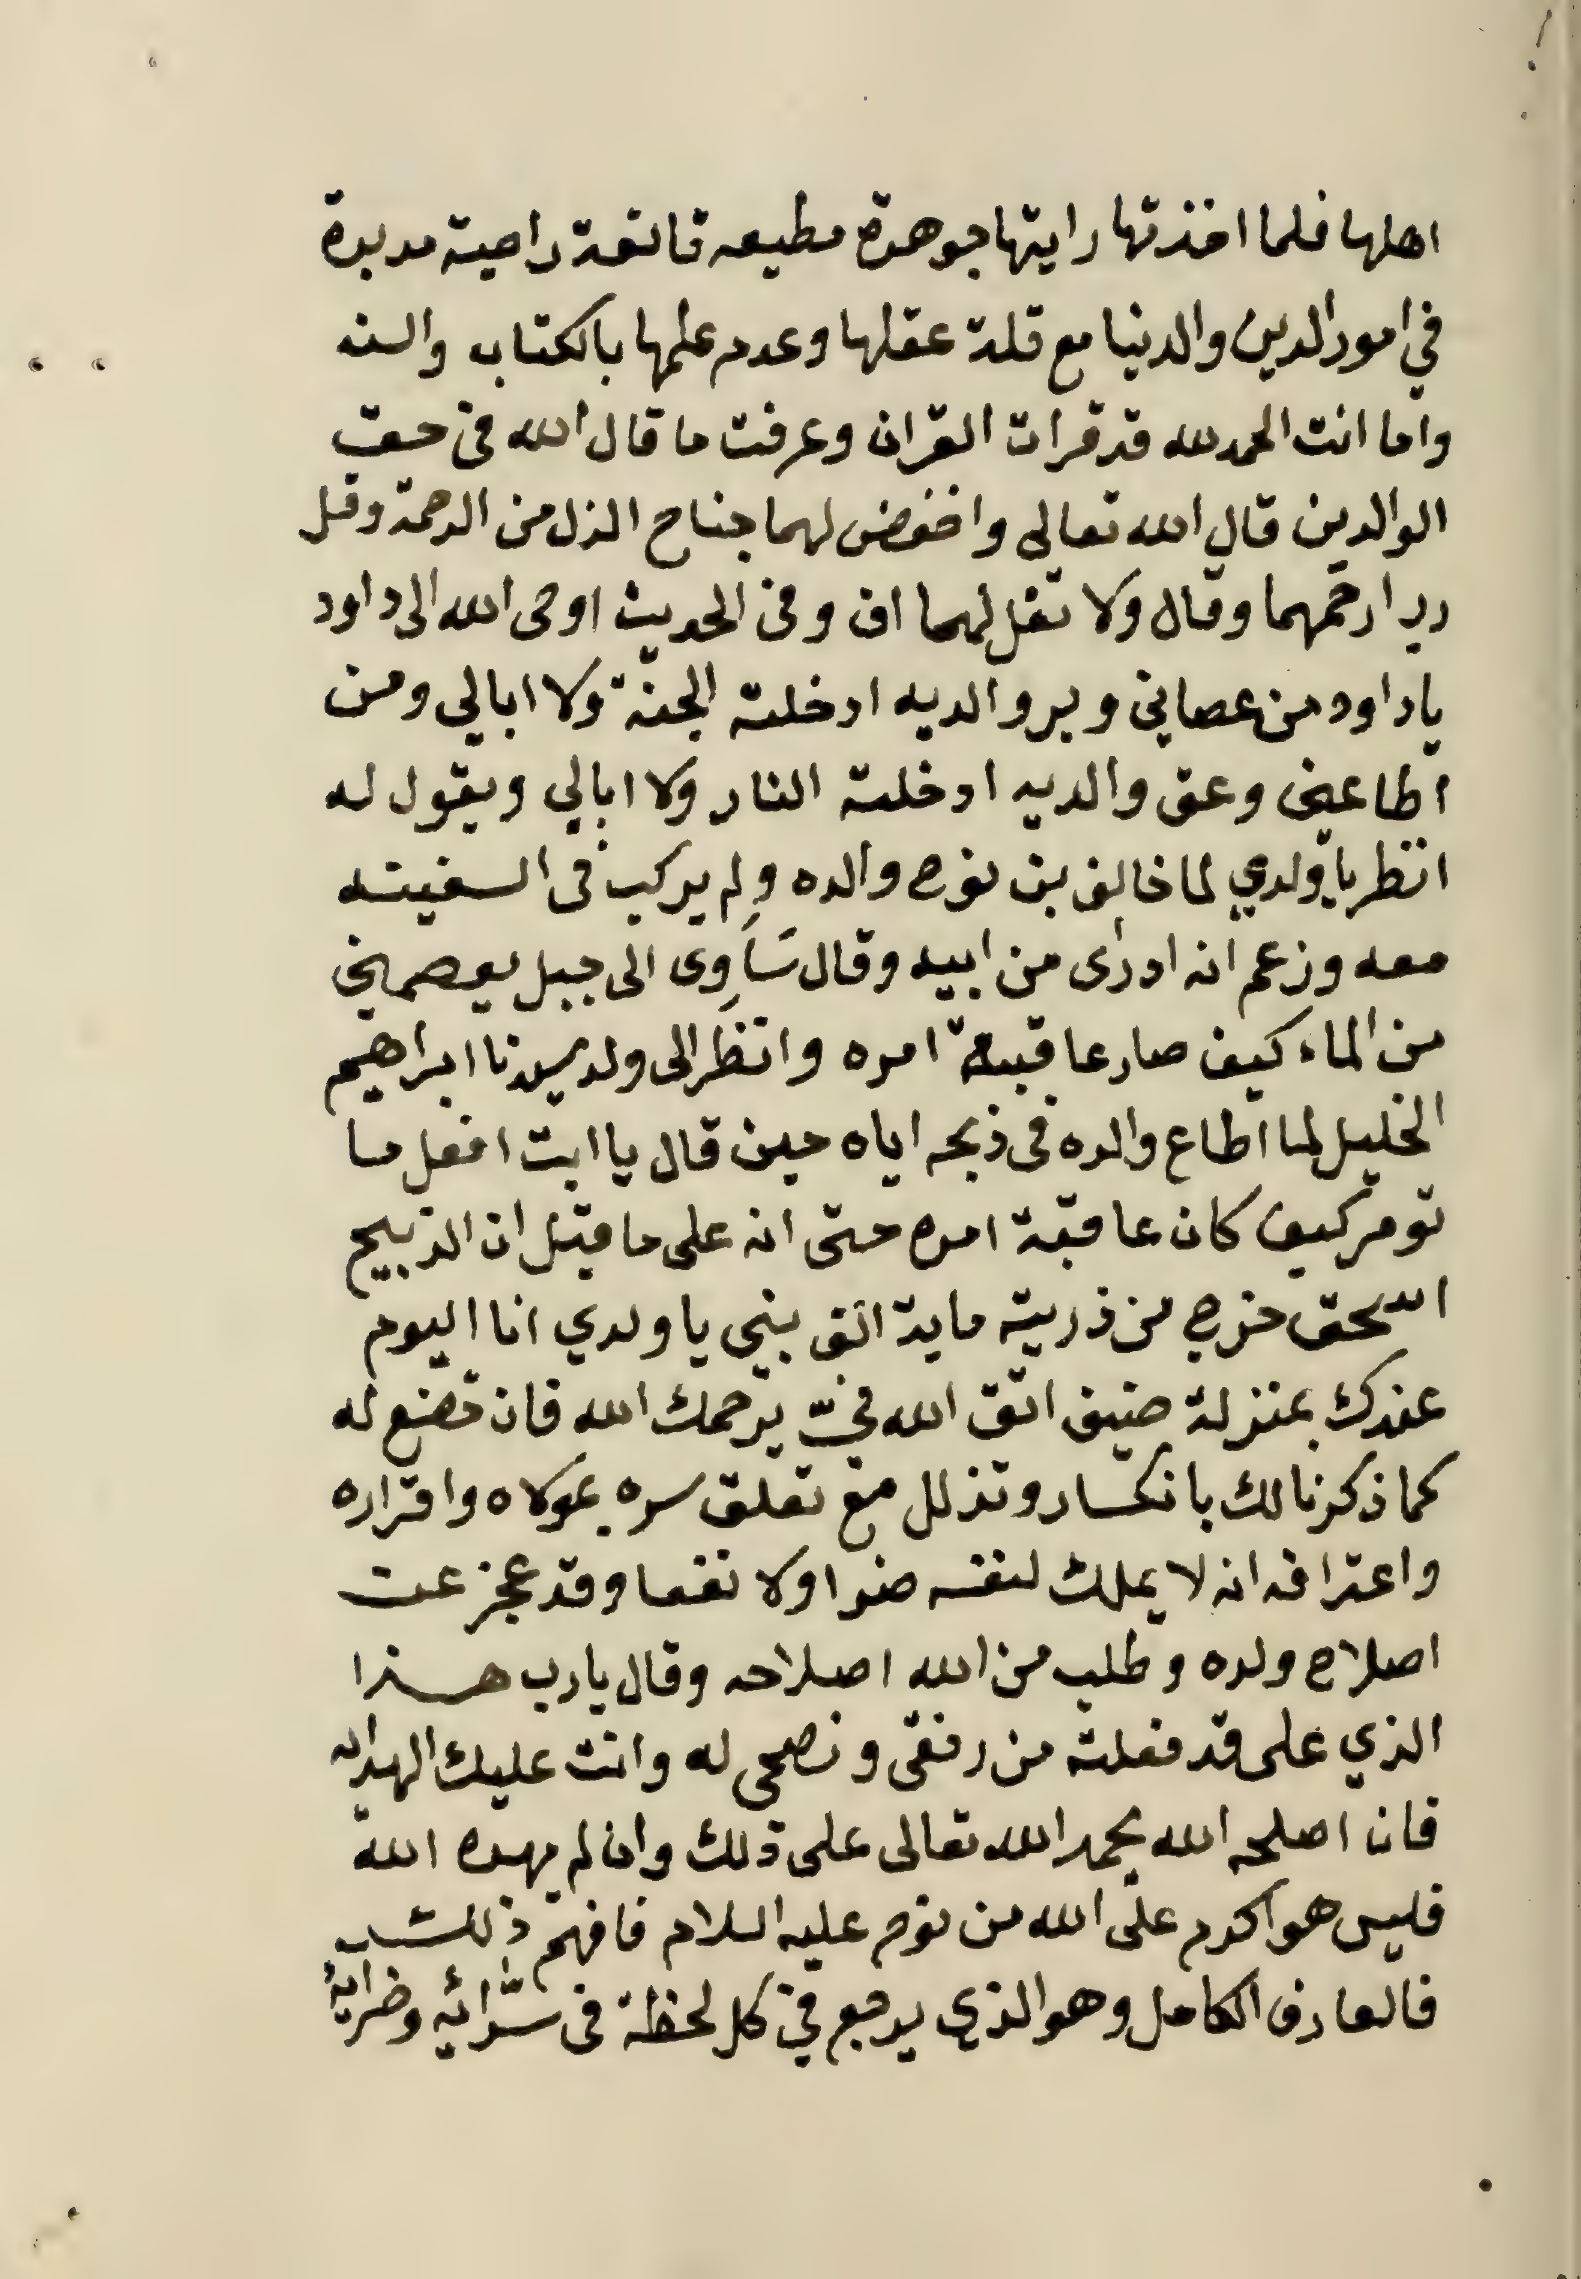 اهلها فلما اخذتها رايتها جوهرة مطيعه قانعة راضية مدبرة
في امور الدين والدنيا مع قلة عقلها وعدم علمها بالكتاب والسنه
واما انت الحمد لله قد قرات القران وعرفت ما قال الله فى حق
الوالدين قال الله تعالى واخفض لهما جناح الذل من الرحمة وقل
رب ارحمهما وقال ولا تقل لهما اف وفى الحديث اوحى الله الى داود
ياداود من عصانى وبر والديه ادخلته الجنة ولا ابالي ومن
اطاعنى وعق والديه ادخلته النار ولا ابالي ويقول له
انظر يا ولدي لما خالف بن نوح والده ولم يركب فى السفينه
معه وزعم انه ادرى من ابيه وقال سَآوِى الى جبل يعصمنى
من الماء كيف صار عاقبة امره وانظر الى ولد سيدنا ابراهيم
الخليل لما اطاع والده فى ذبحه اياه حين قال يا ابت افعل ما
تومر كيف كان عاقبة امره حتى انه على ما قيل ان الذبيح
اسحق خرج من ذريته ماية الف نبى يا ولدي انا اليوم
عندك بمنزلة ضيف اتق الله فيّ يرحمك الله فان خضع له
كما ذكرنا لك بانكسار وتذلل مع تعلق سره بمولاه واقراره
واعترافه انه لا يملك لنفسه ضرا ولا نفعا وقد عجز عن
اصلاح ولده وطلب من الله اصلاحه وقال يارب هذا
الذي على قد فعلته من رفقى ونصحى له وانت عليك الهدايه
فان اصلحه الله يحمد الله تعالى على ذلك وان لم يهده الله
فليس هو اكرم على الله من نوح عليه السلام فافهم ذلك
فالعارف الكامل وهو الذي يرجع في كل لحظة فى سرّائه وضرائه